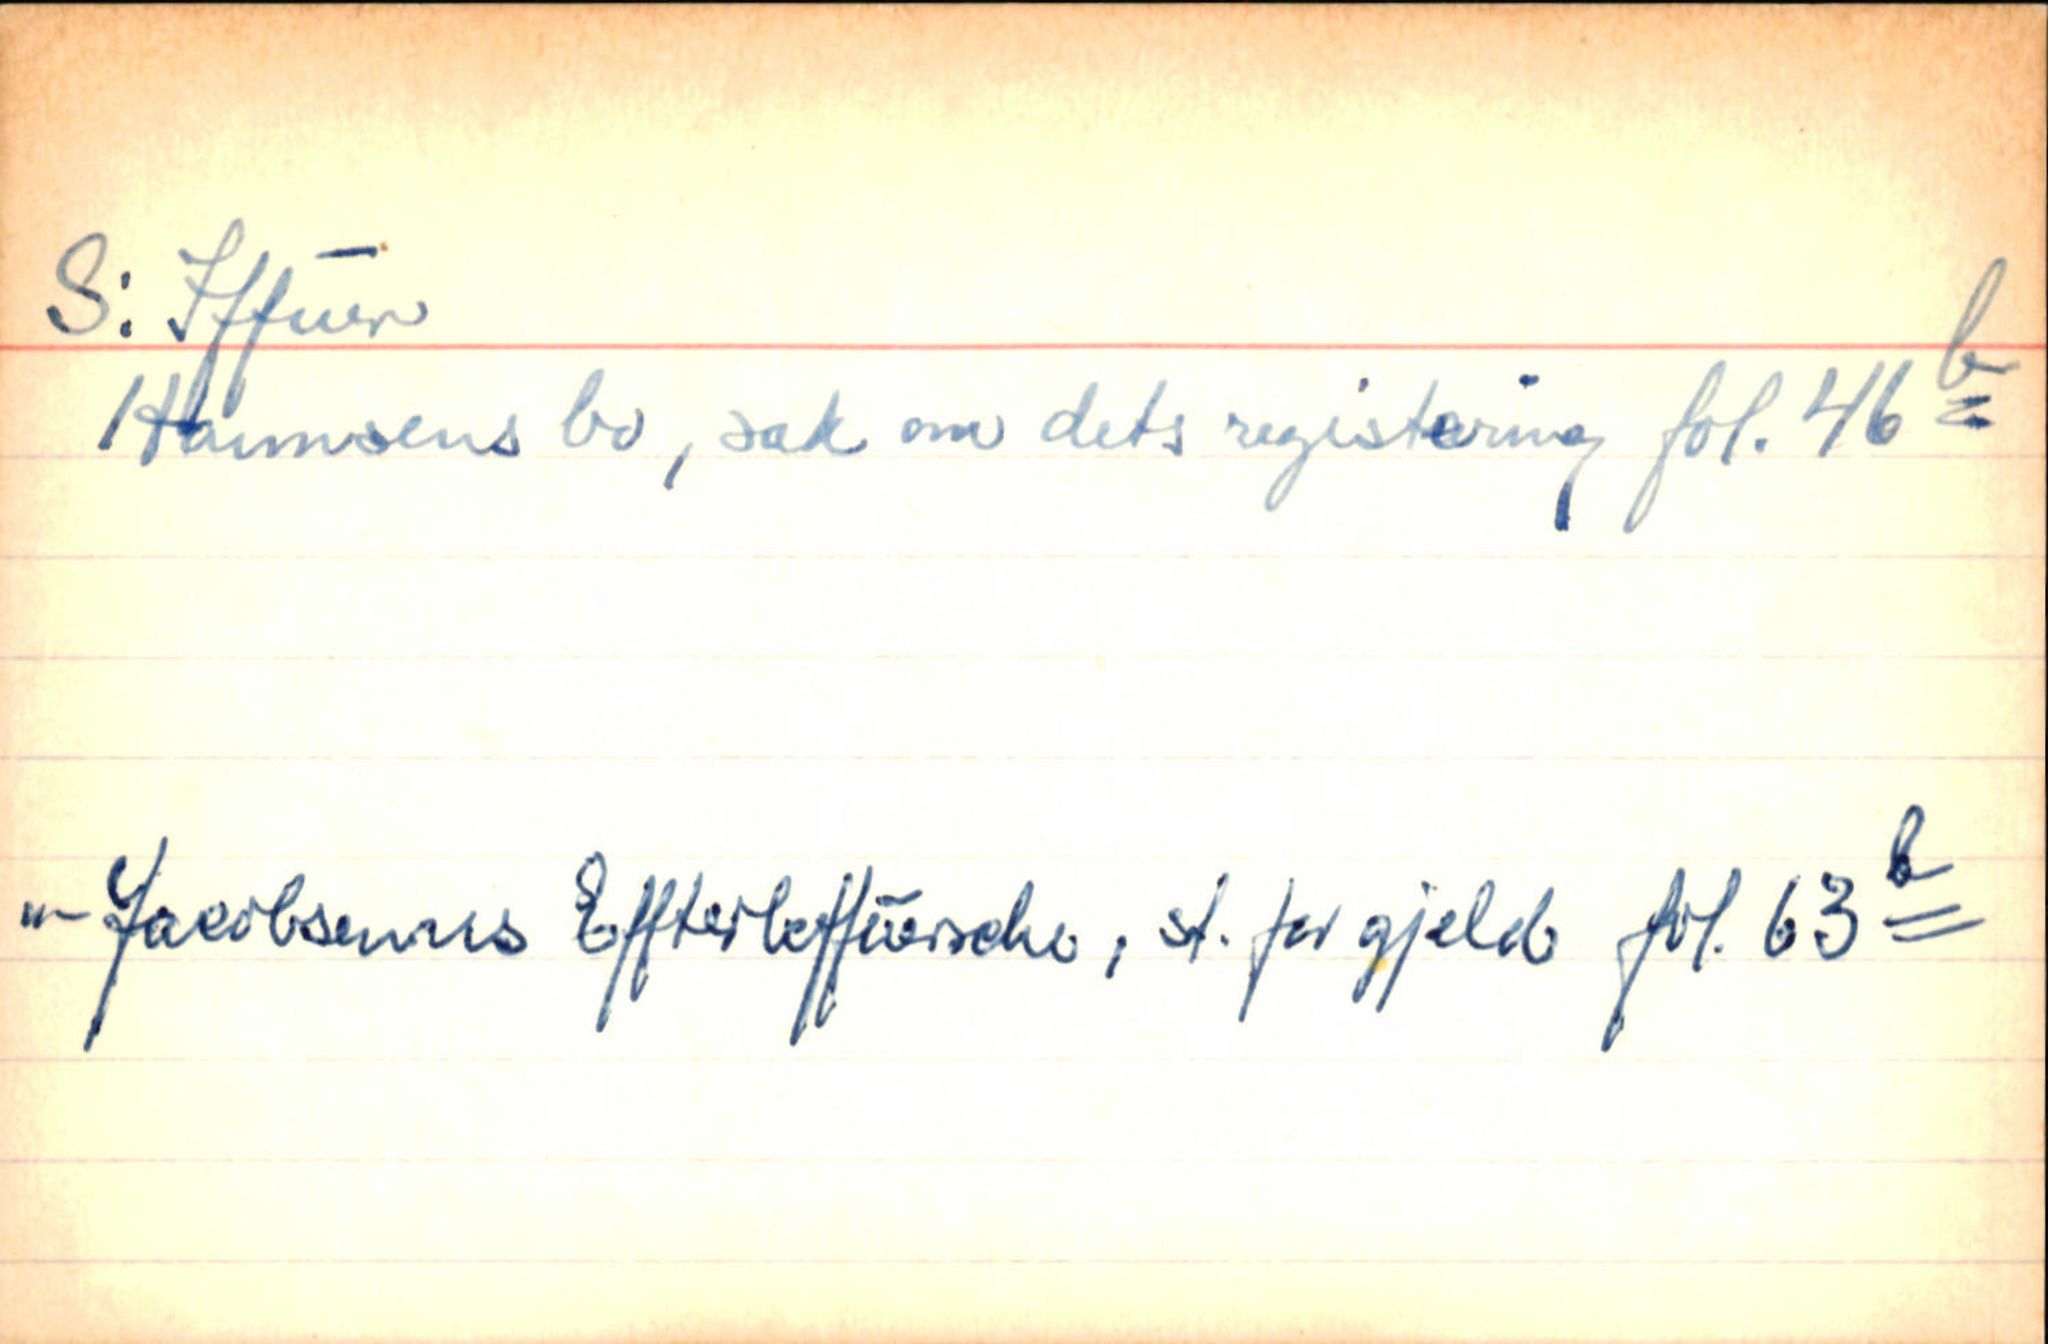 S: Iffuer
Hannsens bo, sak om dets registering fol. 46 b
"- Jacobsenns Effterleffuersche, st. for gjeld fol. 63 b